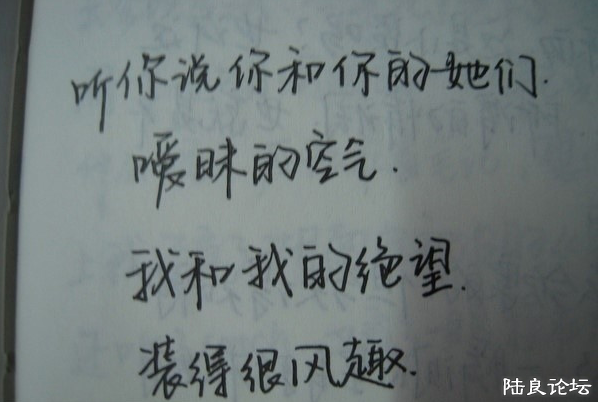 听你说你和你的她们.
暧昧的空气.
我和我的绝望.
装得很风趣.
陆良论坛